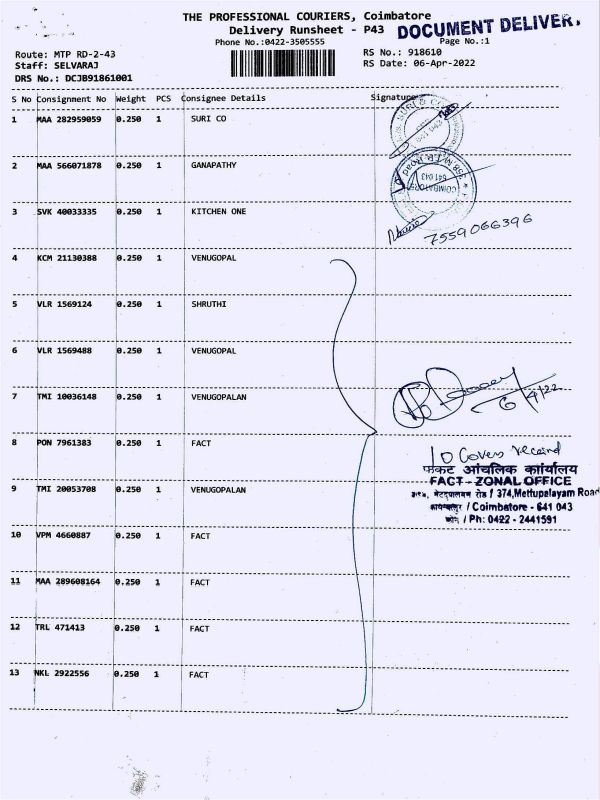 THE PROFESSIONAL COURIERS, Coimbatore
Delivery Runsheet - P43
DOCUMENT DELIVER.
Phone No.:0422-3505555
Page No.:1
Route: MTP RD-2-43
RS No.: 918610
Staff: SELVARAJ
RS Date: 06-Apr-2022
DRS No.: DCJB91861001
S No Consignment No Weight PCS Consignee Details Signature
1 MAA 282959059 0.250 1 SURI CO
2 MAA 566071878 0.250 1 GANAPATHY
641 043
COIMBATORE
3 SVK 40033335 0.250 1 KITCHEN ONE
7559066396
4 KCM 21130388 0.250 1 VENUGOPAL
5 VLR 1569124 0.250 1 SHRUTHI
6 VLR 1569488 0.250 1 VENUGOPAL
7 TMI 10036148 0.250 1 VENUGOPALAN
6/4/22
8 PON 7961383 0.250 1 FACT
10 Covers received
फैक्ट आंचलिक कार्यालय
FACT - ZONAL OFFICE
9 TMI 20053708 0.250 1 VENUGOPALAN
रोड / 374,Mettupalayam Road
/ Coimbatore - 641 043
फोन / Ph: 0422 - 2441591
10 VPM 4660887 0.250 1 FACT
11 MAA 289608164 0.250 1 FACT
12 TRL 471413 0.250 1 FACT
13 NKL 2922556 0.250 1 FACT